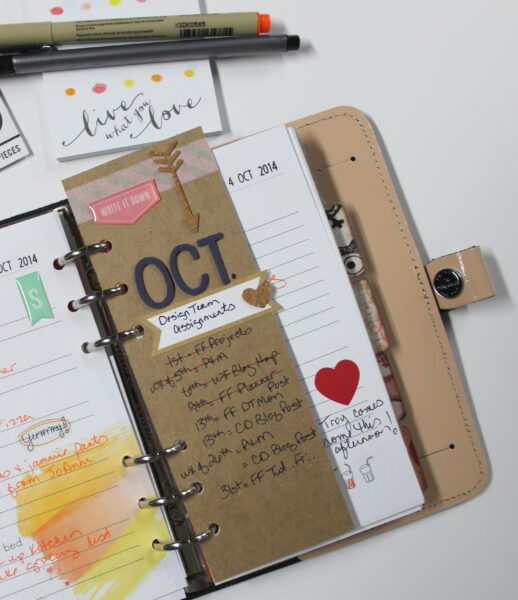 XSDK05#5
live
what you
love
PIECES
WRITE IT DOWN
4 OCT 2014
OCT 2014
S
OCT.
Design Team
Assignments
1st = FF Projects
WK of 5th = PLM
10th = WF Blog Hop
9th = FF Planner
13th = FF DT Mon
Post
13th = CD Blog Post
WK of 20th = PLM
= CD Blog Post
31st = FF Tut - Fri..
Troy comes
home this
afternoon!
Pizza
yummy!
& jammie pants
from JoAnn
bed
up kitchen
grocery list